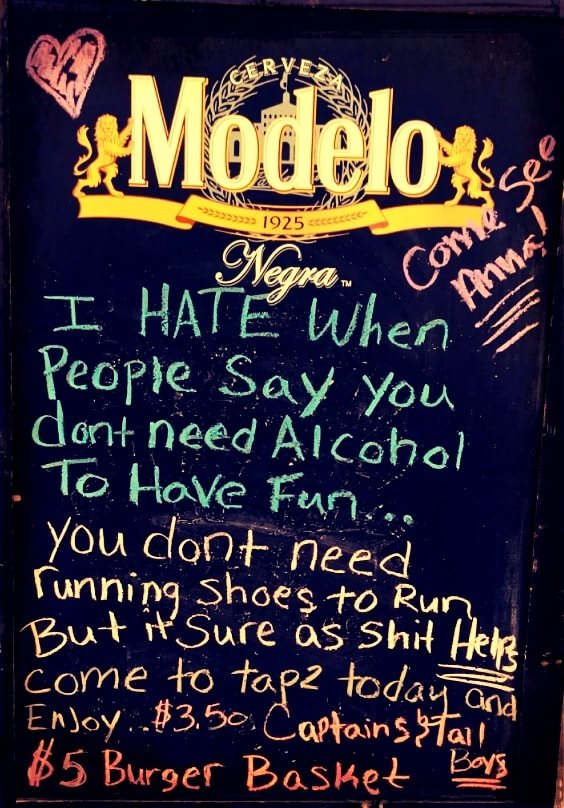 CERVEZA
Modelo
1925
Negra™
Come See
Anna!
I HATE When
People Say you
dont need Alcohol
To Have Fun...
you dont need
running shoes to Run
But it Sure as Shit Helps
come to tap2 today and
EnJoy.. $3.50 Captains & Tall
Boys
$5 Burger Basket